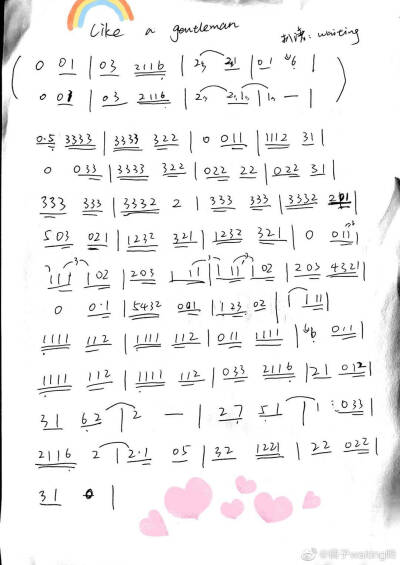 Like a gentleman
扒谱: waiting
( 0 01 | 03 2116 | 23 21 | 01 6 |
0 01 | 03 2116 | 23 2 1 | 1 — | )
0.5 3333 | 3333 322 | 0 011 | 1112 31 |
0 033 | 3333 322 | 022 22 | 022 31 |
333 333 | 3332 2 | 333 333 | 3332 201 |
503 021 | 1232 321 | 1232 321 | 0 011 |
111 1 02 | 203 1 11 | 1 11 02 | 203 4321 |
0 0.1 | 5432 001 | 123 02 | 1 111 |
1111 112 | 1111 112 | 011 1111 | 6 011 |
1111 112 | 1111 112 | 033 2116 | 21 012 |
31 62 | 2 — | 27 51 | 1 033 |
2116 2 | 2.1 05 | 32 1221 | 22 022 |
31 0 |